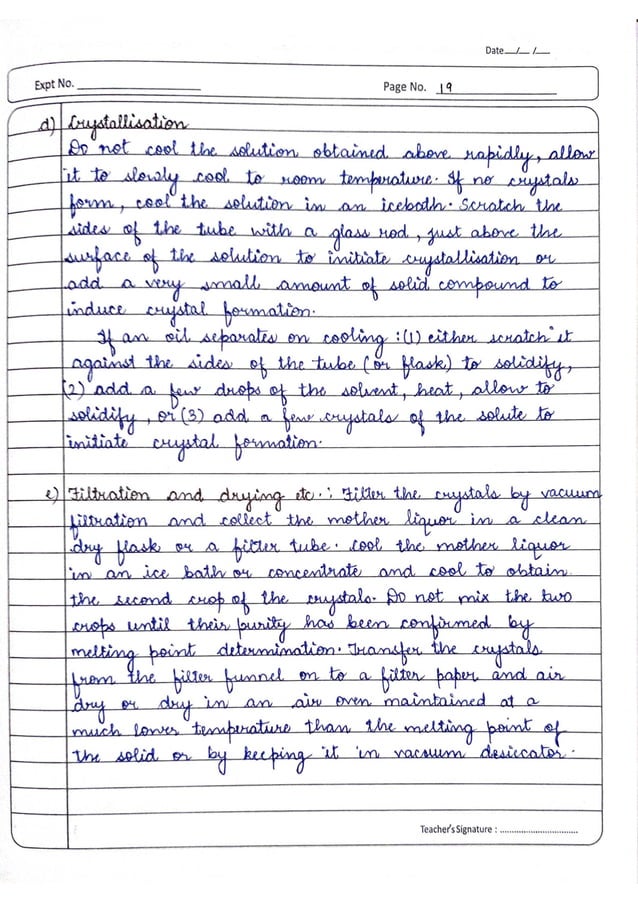 Date __/__ /__
Expt No. ____________
Page No. 19
d) Crystallisation
Do not cool the solution obtained above rapidly, allow
it to slowly cool to room temperature. If no crystals
form, cool the solution in an icebath. Scratch the
sides of the tube with a glass rod, just above the
surface of the solution to initiate crystallisation or
add a very small amount of solid compound to
induce crystal formation.
If an oil separates on cooling : (1) either scratch it
against the sides of the tube (or flask) to solidify,
(2) add a few drops of the solvent, heat, allow to
solidify, or (3) add a few crystals of the solute to
initiate crystal formation.
e) Filtration and drying etc. : Filter the crystals by vacuum
filtration and collect the mother liquor in a clean
dry flask or a filter tube. Cool the mother liquor
in an ice bath or concentrate and cool to obtain
the second crop of the crystals. Do not mix the two
crops until their purity has been confirmed by
melting point determination. Transfer the crystals
from the filter funnel on to a filter paper and air
dry or dry in an air oven maintained at a
much lower temperature than the melting point of
the solid or by keeping it in vacuum desiccator.
Teacher's Signature : ................................